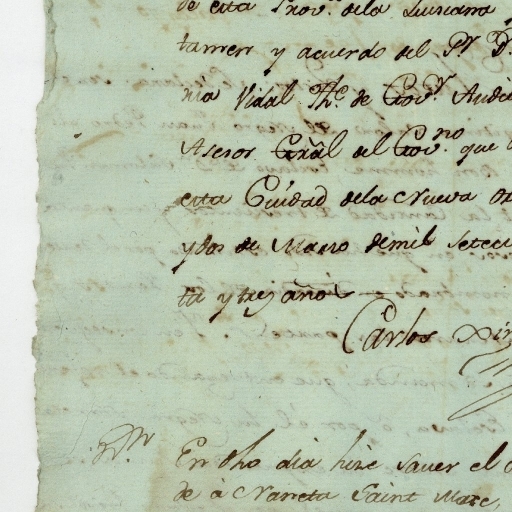 de esta Prov.ª dela Luisiana
tamen y acuerdo del Sr. D.
nia Vidal The. de Gov.r Audit
Asesor Gral del Gov.no que
esta Ciudad dela Nueva Or
y dos de Marzo demil seteci
ta y tres años
Carlos Xim
En dho dia hize saver el
de à Naneta Saint Maxe,